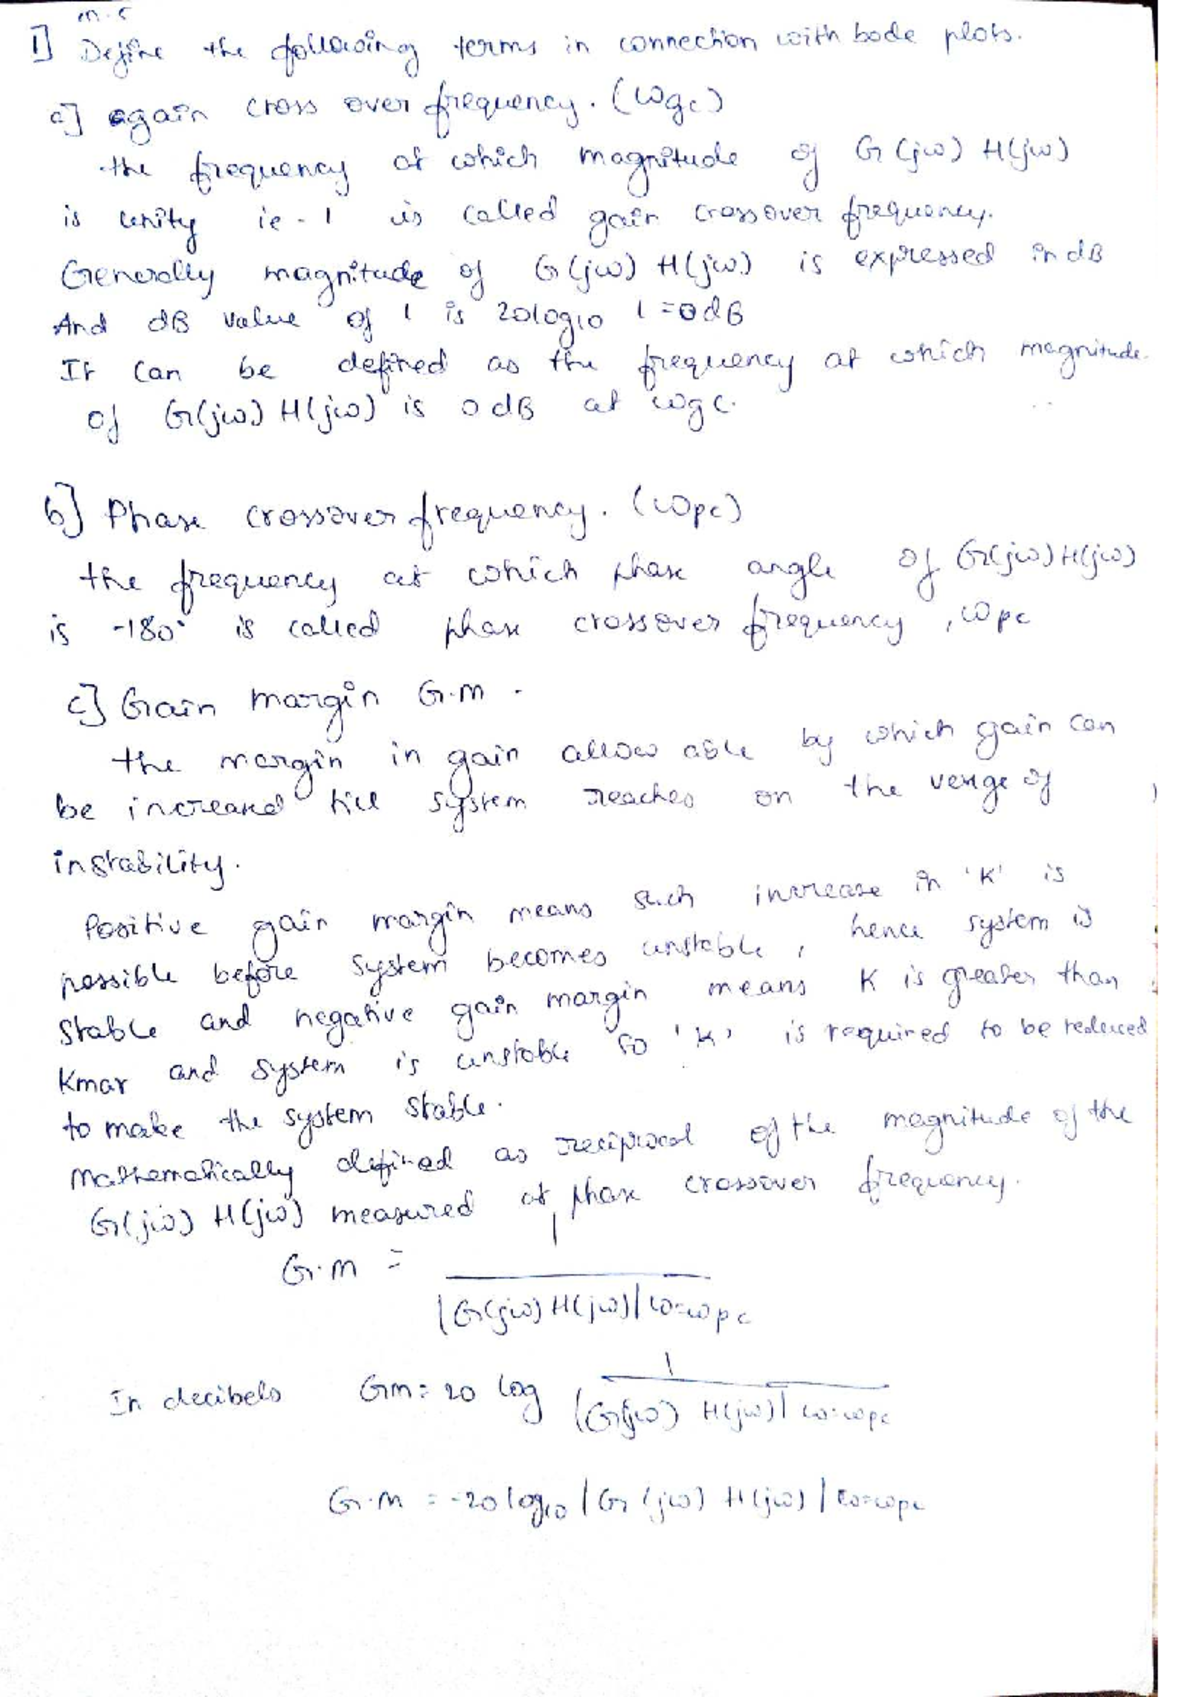 m.5
1] Define the following terms in connection with bode plots.
a] gain cross over frequency. (ωgc)
the frequency at which magnitude of G(jω) H(jω)
is unity ie - 1 is called gain crossover frequency.
Generally magnitude of G(jω) H(jω) is expressed in dB
And dB value of 1 is 20log10 1 = 0dB
It can be defined as the frequency at which magnitude
of G(jω) H(jω) is 0 dB at ωgc.
b] Phase crossover frequency. (ωpc)
the frequency at which phase angle of G(jω)H(jω)
is -180° is called phase crossover frequency, ωpc
c] Gain margin G.m.
the margin in gain allow able by which gain can
be increased till system reaches on the verge of
instability.
Positive gain margin means such increase in 'K' is
possible before system becomes unstable, hence system is
stable and negative gain margin means K is greater than
Kmar and system is unstable so 'K' is required to be reduced
to make the system stable.
Mathematically defined as reciprocal of the magnitude of the
G(jω) H(jω) measured at phase crossover frequency.
1
G.m =
|G(jω) H(jω)| ω=ωpc
1
In decibels Gm = 20 log
|G(jω) H(jω)| ω=ωpc
G.m = -20 log10 |G(jω) H(jω)| ω=ωpc